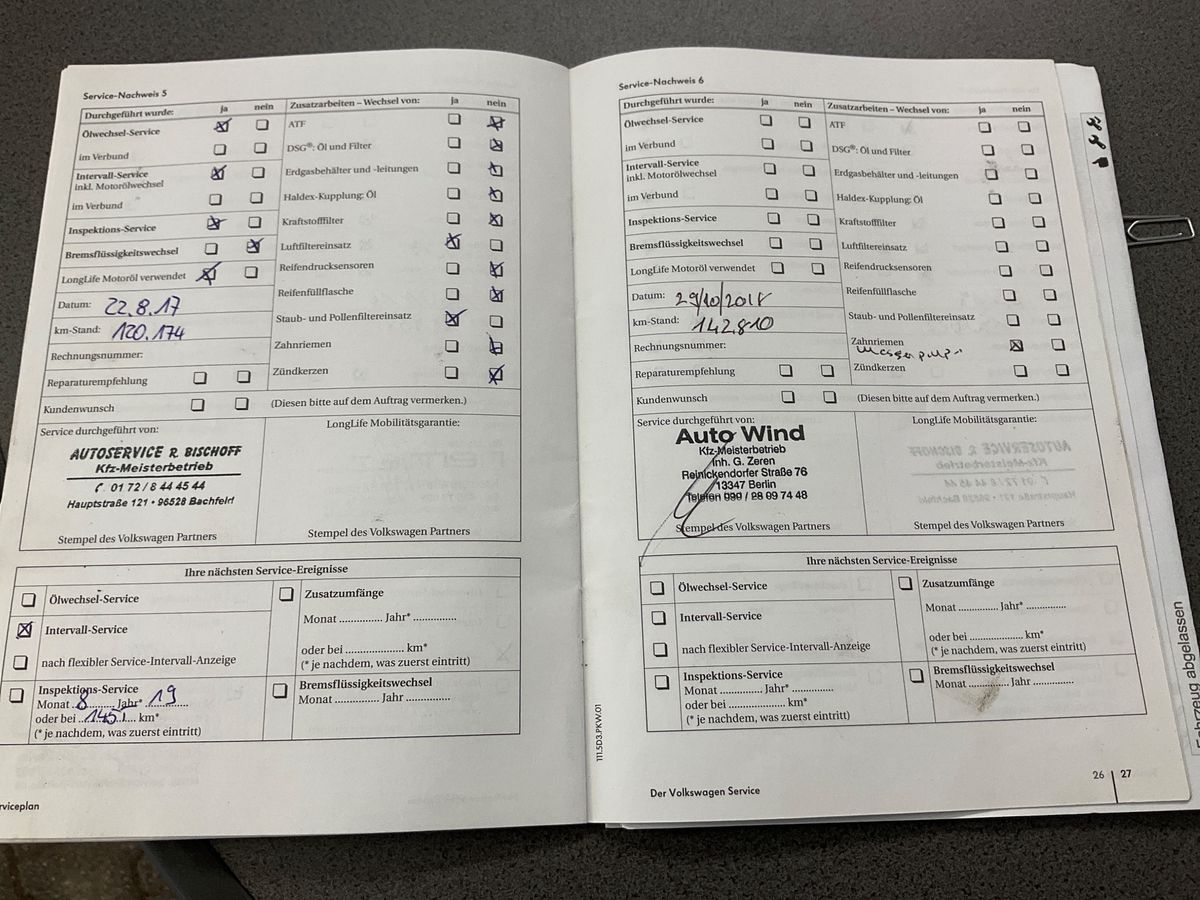 Service-Nachweis 5
Durchgeführt wurde: ja nein
Ölwechsel-Service
im Verbund
Intervall-Service
inkl. Motorölwechsel
im Verbund
Inspektions-Service
Bremsflüssigkeitswechsel
LongLife Motoröl verwendet
Datum: 22.8.17
km-Stand: 120.174
Rechnungsnummer:
Reparaturempfehlung
Kundenwunsch
Zusatzarbeiten – Wechsel von: ja nein
ATF
DSG®: Öl und Filter
Erdgasbehälter und -leitungen
Haldex-Kupplung: Öl
Kraftstofffilter
Luftfiltereinsatz
Reifendrucksensoren
Reifenfüllflasche
Staub- und Pollenfiltereinsatz
Zahnriemen
Zündkerzen
(Diesen bitte auf dem Auftrag vermerken.)
Service durchgeführt von:
AUTOSERVICE R. BISCHOFF
Kfz-Meisterbetrieb
01 72 / 8 44 45 44
Hauptstraße 121 • 96528 Bachfeld
Stempel des Volkswagen Partners
LongLife Mobilitätsgarantie:
Stempel des Volkswagen Partners
Ihre nächsten Service-Ereignisse
Ölwechsel-Service
Intervall-Service
nach flexibler Service-Intervall-Anzeige
Inspektions-Service
Monat 8 Jahr* 19
oder bei 145 km*
(* je nachdem, was zuerst eintritt)
Zusatzumfänge
Monat ............ Jahr* ............
oder bei .................... km*
(* je nachdem, was zuerst eintritt)
Bremsflüssigkeitswechsel
Monat ............ Jahr ............
rviceplan
Service-Nachweis 6
Durchgeführt wurde: ja nein
Ölwechsel-Service
im Verbund
Intervall-Service
inkl. Motorölwechsel
im Verbund
Inspektions-Service
Bremsflüssigkeitswechsel
LongLife Motoröl verwendet
Datum: 29/10/2018
km-Stand: 142.810
Rechnungsnummer:
Reparaturempfehlung
Kundenwunsch
Zusatzarbeiten – Wechsel von: ja nein
ATF
DSG®: Öl und Filter
Erdgasbehälter und -leitungen
Haldex-Kupplung: Öl
Kraftstofffilter
Luftfiltereinsatz
Reifendrucksensoren
Reifenfüllflasche
Staub- und Pollenfiltereinsatz
Zahnriemen
Zündkerzen
(Diesen bitte auf dem Auftrag vermerken.)
Service durchgeführt von:
Auto Wind
Kfz-Meisterbetrieb
Inh. G. Zeren
Reinickendorfer Straße 76
13347 Berlin
Telefon 030 / 28 09 74 48
Stempel des Volkswagen Partners
LongLife Mobilitätsgarantie:
Stempel des Volkswagen Partners
Ihre nächsten Service-Ereignisse
Ölwechsel-Service
Intervall-Service
nach flexibler Service-Intervall-Anzeige
Inspektions-Service
Monat ............ Jahr* ............
oder bei .................... km*
(* je nachdem, was zuerst eintritt)
Zusatzumfänge
Monat ............ Jahr* ............
oder bei .................... km*
(* je nachdem, was zuerst eintritt)
Bremsflüssigkeitswechsel
Monat ............ Jahr ............
111.5D3.PKW.01
Der Volkswagen Service
26 27
Fahrzeug abgelassen